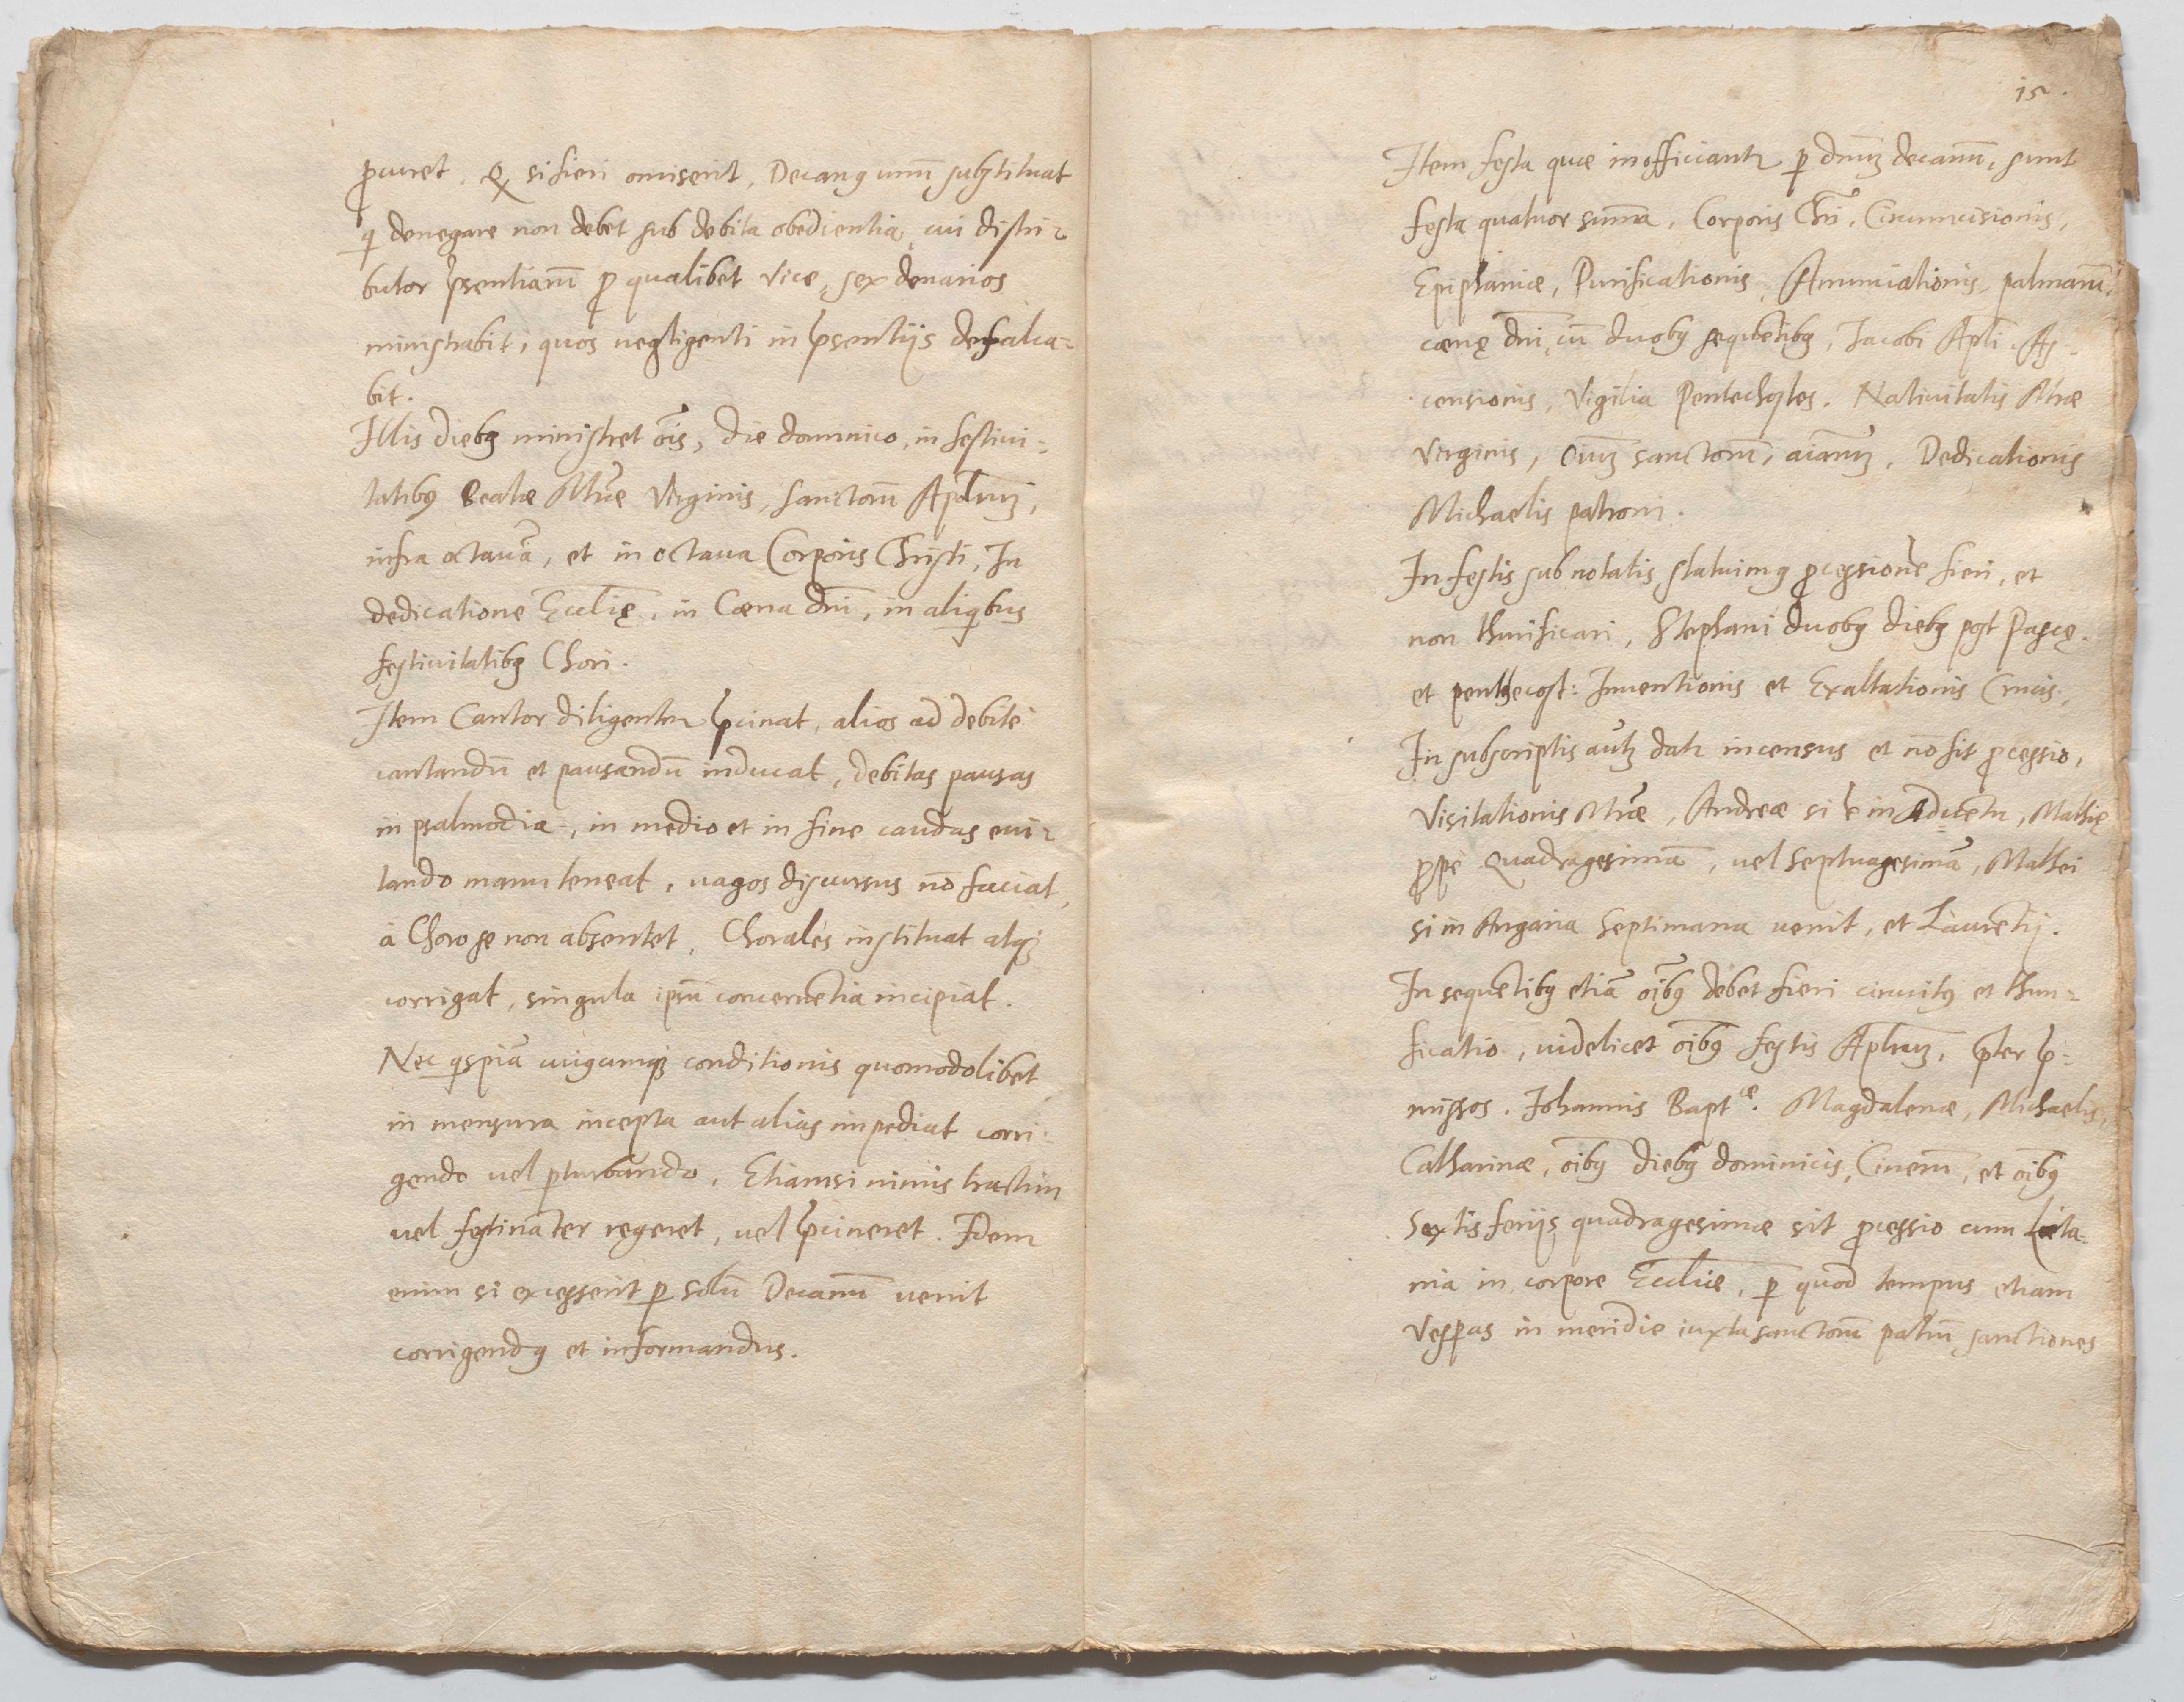 ꝓcuret. Qꝫ si fieri omiserit, Decanꝰ unū substituat
q̨ denegare non debet sub debita obedientia, cui distri-
butor p̄sentiarū ꝓ qualibet vice, sex denarios
ministrabit, quos negligenti in p̄sentijs defalca-
bit.
Illis diebꝰ ministret oīs, die dominico, in festiui-
tatibꝰ Beatæ Mr̄iæ Virginis, sanctorū Apl̄orum,
infra octauā, et in octaua Corporis Christi, In
dedicatione Eccl̄ię, in Cœna dn̄i, in aliq̨bus
festiuitatibꝰ Chori.
Item Cantor diligenter p̄cinat, alios ad debitè
cantandū et pausandū inducat, debitas pausas
in psalmodia, in medio et in fine caudas eui-
tando manu teneat, uagos discursus nō faciat,
à Choro se non absentet. Chorales instituat atqꝫ
corrigat, singula ipsū concernētia incipiat.
Nec q̨spiā cuiꝰcumqꝫ conditionis quomodolibet
in mensura incepta aut alias impediat corri-
gendo uel ꝑturbando. Etiamsi nimis tractim
uel festinanter regeret, uel p̄cineret. Idem
enim si excesserit ꝑ solū Decanū uenit
corrigendꝰ et informandus.
15.
Item festa quæ inofficiantr ꝑ dn̄um decanū, sunt
festa quatuor sum̄a, Corporis Chr̄i, Circumcisionis,
Epiphaniæ, Purificationis, Annunciationis, palmarū,
cœnę dn̄i, cū duobꝰ sequētibꝰ, Jacobi Apl̄i, As-
censionis, Vigilia Pentechostes. Natiuitatis Mr̄iæ
Virginis, Oīum sanctorū, aīarum, Dedicationis
Michaelis patroni.
In festis sub notatis statuimꝰ ꝓcessione fieri, et
non thurificari, Stephani duobꝰ diebꝰ post Pascę.
et penthecost: Inuentionis et Exaltationis Crucis.
In subscriptis autꝫ datr incensus et nō fit ꝓcessio,
Visitationis Mr̄iæ, Andreæ si ē in Aduētu, Mathię
ꝓpè Quadragesimā, uel Septuagesimā, Mathei
si in Angaria Septimana uenit, et Laurētij.
In sequētibꝰ etiā oīb9 debet fieri circuitꝰ et thuri-
ficatio, uidelicet oībꝰ festis Apl̄orum, p̄ter p̄-
missos. Johannis Baptæ. Magdalenæ, Michaelis,
Catharinæ, oībꝰ diebꝰ dominicis, Cinerū, et oībꝰ
Sextis ferijs quadragesimæ sit ꝓcessio cum Lita-
nia in corpore Eccl̄iæ, ꝑ quod tempus etiam
Vesꝑas in meridie iuxta sanctorū patrū sanctiones